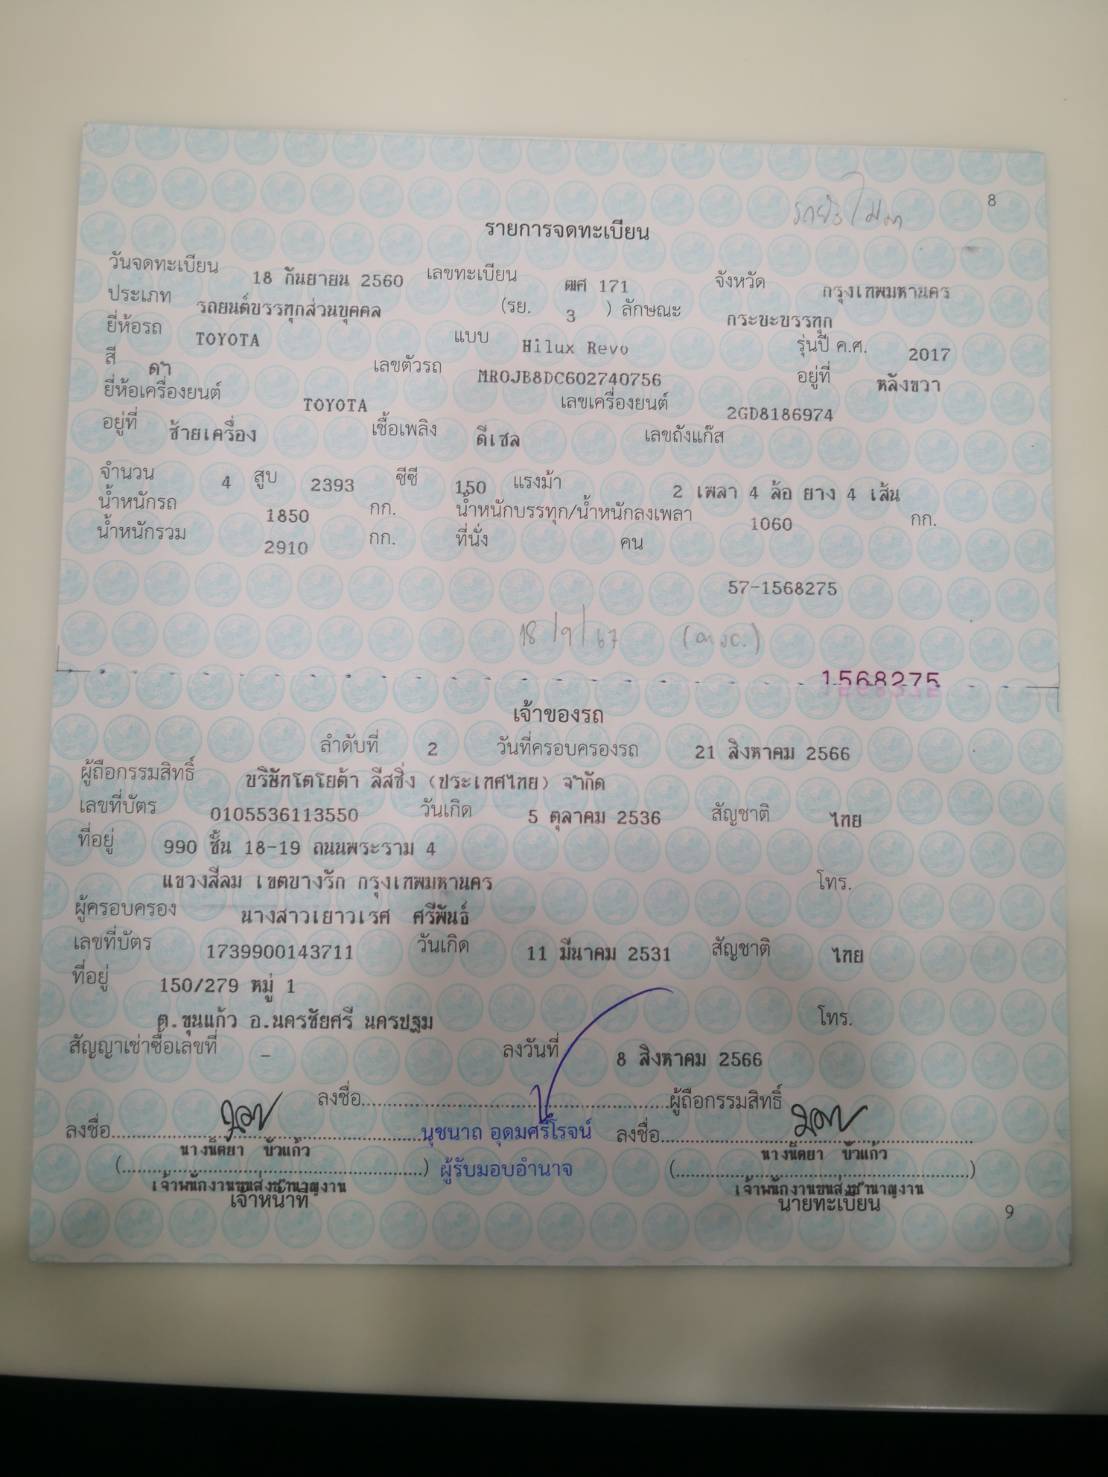 8
รายการจดทะเบียน
วันจดทะเบียน 18 กันยายน 2560 เลขทะเบียน ฒศ 171 จังหวัด กรุงเทพมหานคร
ประเภท รถยนต์บรรทุกส่วนบุคคล (รย. 3 ) ลักษณะ กระบะบรรทุก
ยี่ห้อรถ TOYOTA แบบ Hilux Revo รุ่นปี ค.ศ. 2017
สี ดำ เลขตัวรถ MR0JB8DC602740756 อยู่ที่ หลังขวา
ยี่ห้อเครื่องยนต์ TOYOTA เลขเครื่องยนต์ 2GD8186974
อยู่ที่ ซ้ายเครื่อง เชื้อเพลิง ดีเซล เลขถังแก๊ส
จำนวน 4 สูบ 2393 ซีซี 150 แรงม้า 2 เพลา 4 ล้อ ยาง 4 เส้น
น้ำหนักรถ 1850 กก. น้ำหนักบรรทุก/น้ำหนักลงเพลา 1060 กก.
น้ำหนักรวม 2910 กก. ที่นั่ง คน
57-1568275
18/9/67
1568275
เจ้าของรถ
ลำดับที่ 2 วันที่ครอบครองรถ 21 สิงหาคม 2566
ผู้ถือกรรมสิทธิ์ บริษัทโตโยต้า ลีสซิ่ง (ประเทศไทย) จำกัด
เลขที่บัตร 0105536113550 วันเกิด 5 ตุลาคม 2536 สัญชาติ ไทย
ที่อยู่ 990 ชั้น 18-19 ถนนพระราม 4
แขวงสีลม เขตบางรัก กรุงเทพมหานคร โทร.
ผู้ครอบครอง นางสาวเยาวเรศ ศรีพันธ์
เลขที่บัตร 1739900143711 วันเกิด 11 มีนาคม 2531 สัญชาติ ไทย
ที่อยู่ 150/279 หมู่ 1
ต.ขุนแก้ว อ.นครชัยศรี นครปฐม โทร.
สัญญาเช่าซื้อเลขที่ - ลงวันที่ 8 สิงหาคม 2566
ลงชื่อ ผู้ถือกรรมสิทธิ์
ลงชื่อ นุชนาถ อุดมศรีโรจน์ ลงชื่อ
นางนิตยา บัวแก้ว นางนิตยา บัวแก้ว
( ) ผู้รับมอบอำนาจ ( )
เจ้าพนักงานขนส่งชำนาญงาน เจ้าพนักงานขนส่งชำนาญงาน
เจ้าหน้าที่ นายทะเบียน
9